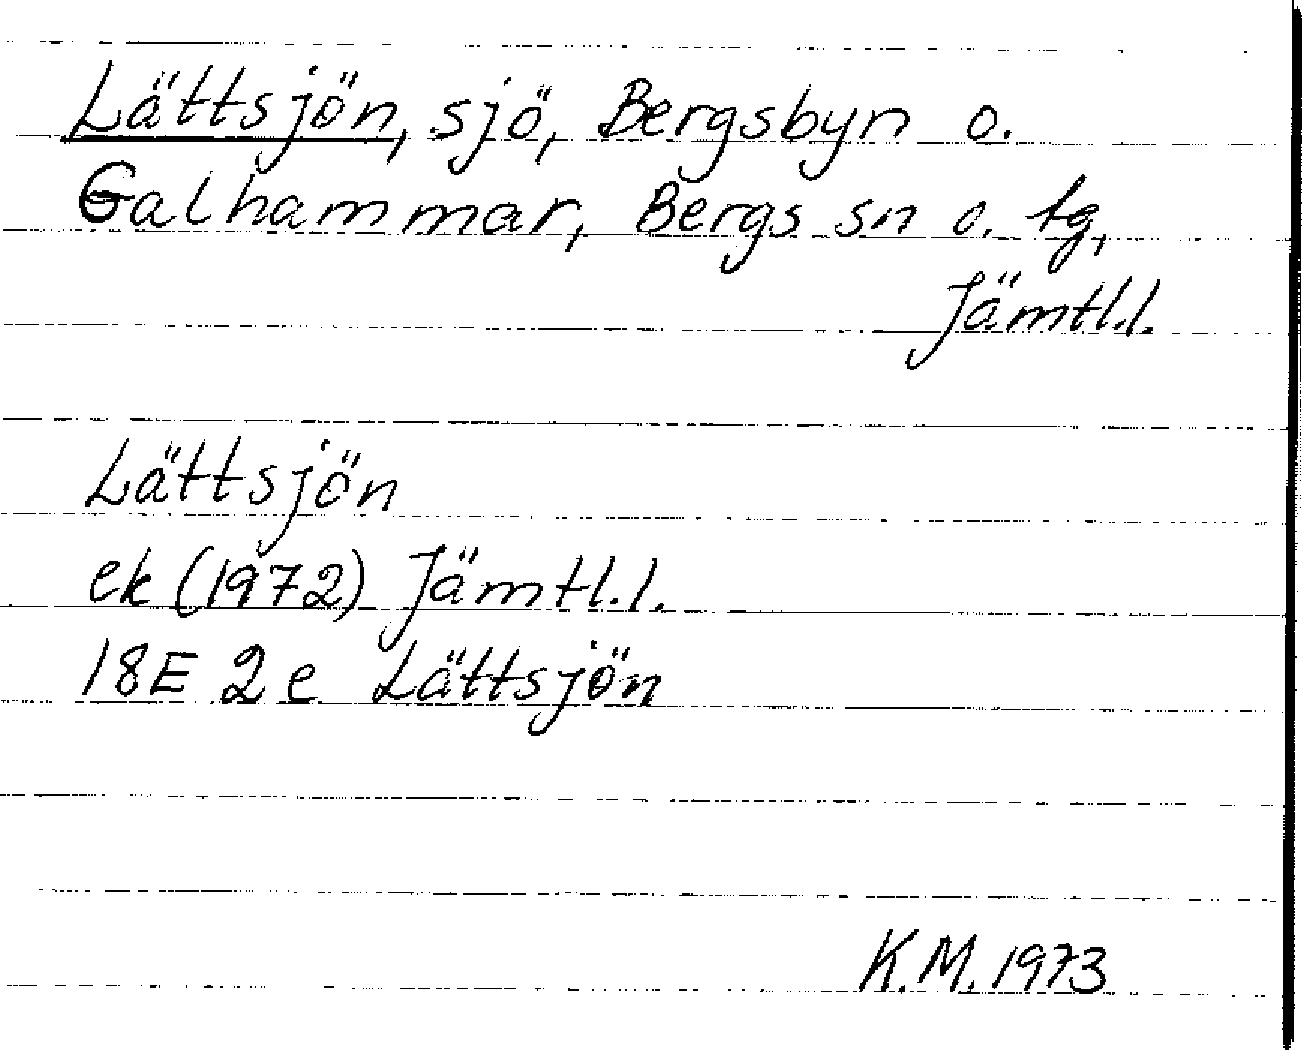 Lättsjön, sjö, Bergsbyn o.
Galhammar, Bergs sn o. tg,
Jämtl.l.
Lättsjön
ek (1972) Jämtl.l.
18E 2e Lättsjön
K.M. 1973